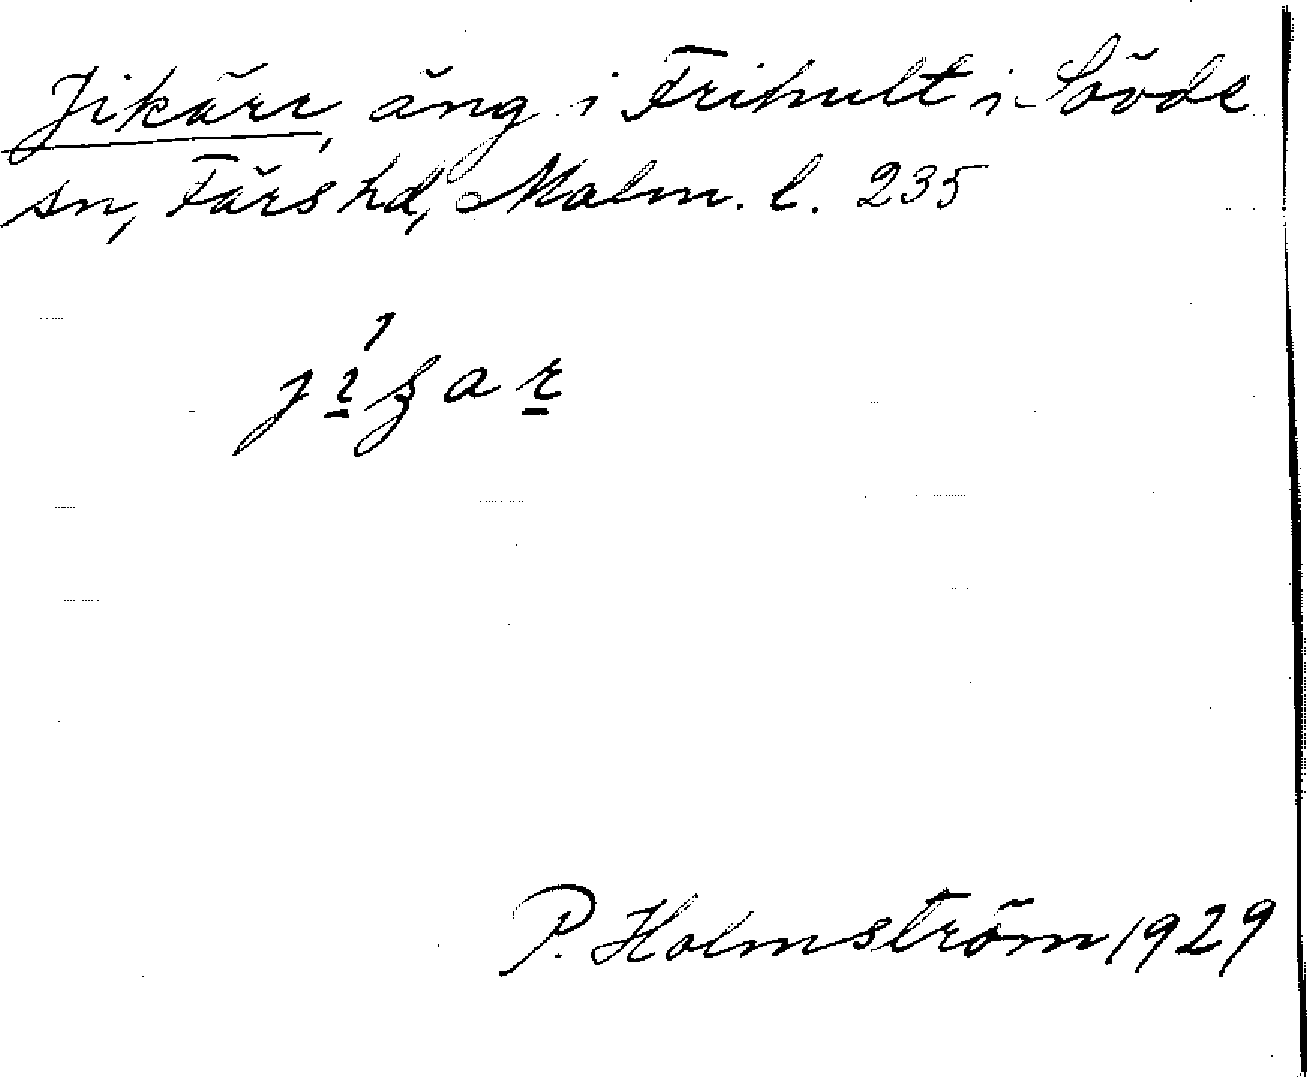 Jikärr, äng i Frihult i Sövde
sn, Färs hd, Malm. l. 235
P. Holmström 1929